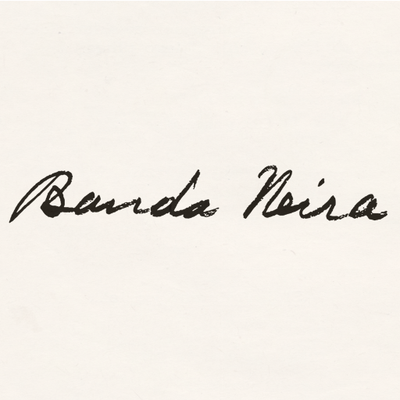 Banda Neira